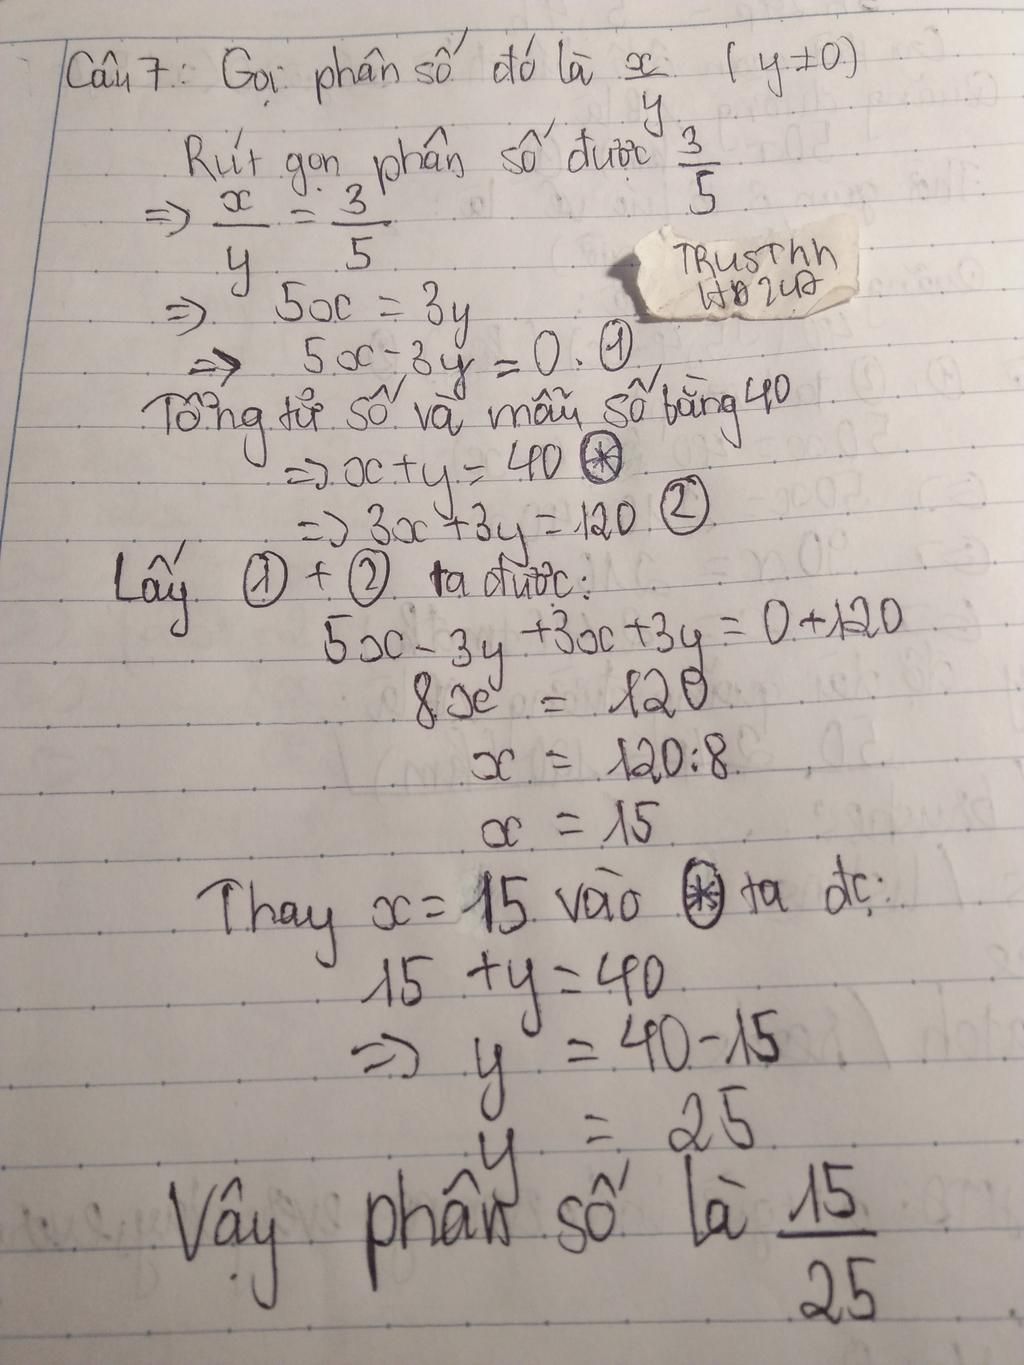 Câu 7: Gọi phân số đó là x/y (y≠0)
Rút gọn phân số được 3/5
=> x/y = 3/5
=> 5x = 3y
=> 5x - 3y = 0. ①
TRUSThh
HD247
Tổng tử số và mẫu số bằng 40
=> x+y = 40 ⊛
=> 3x+3y = 120 ②
Lấy ① + ② ta được:
5x - 3y + 3x + 3y = 0 + 120
8x = 120
x = 120:8
x = 15
Thay x = 15 vào ⊛ ta đc:
15 + y = 40
=> y = 40 - 15
y = 25
Vậy phân số là 15/25